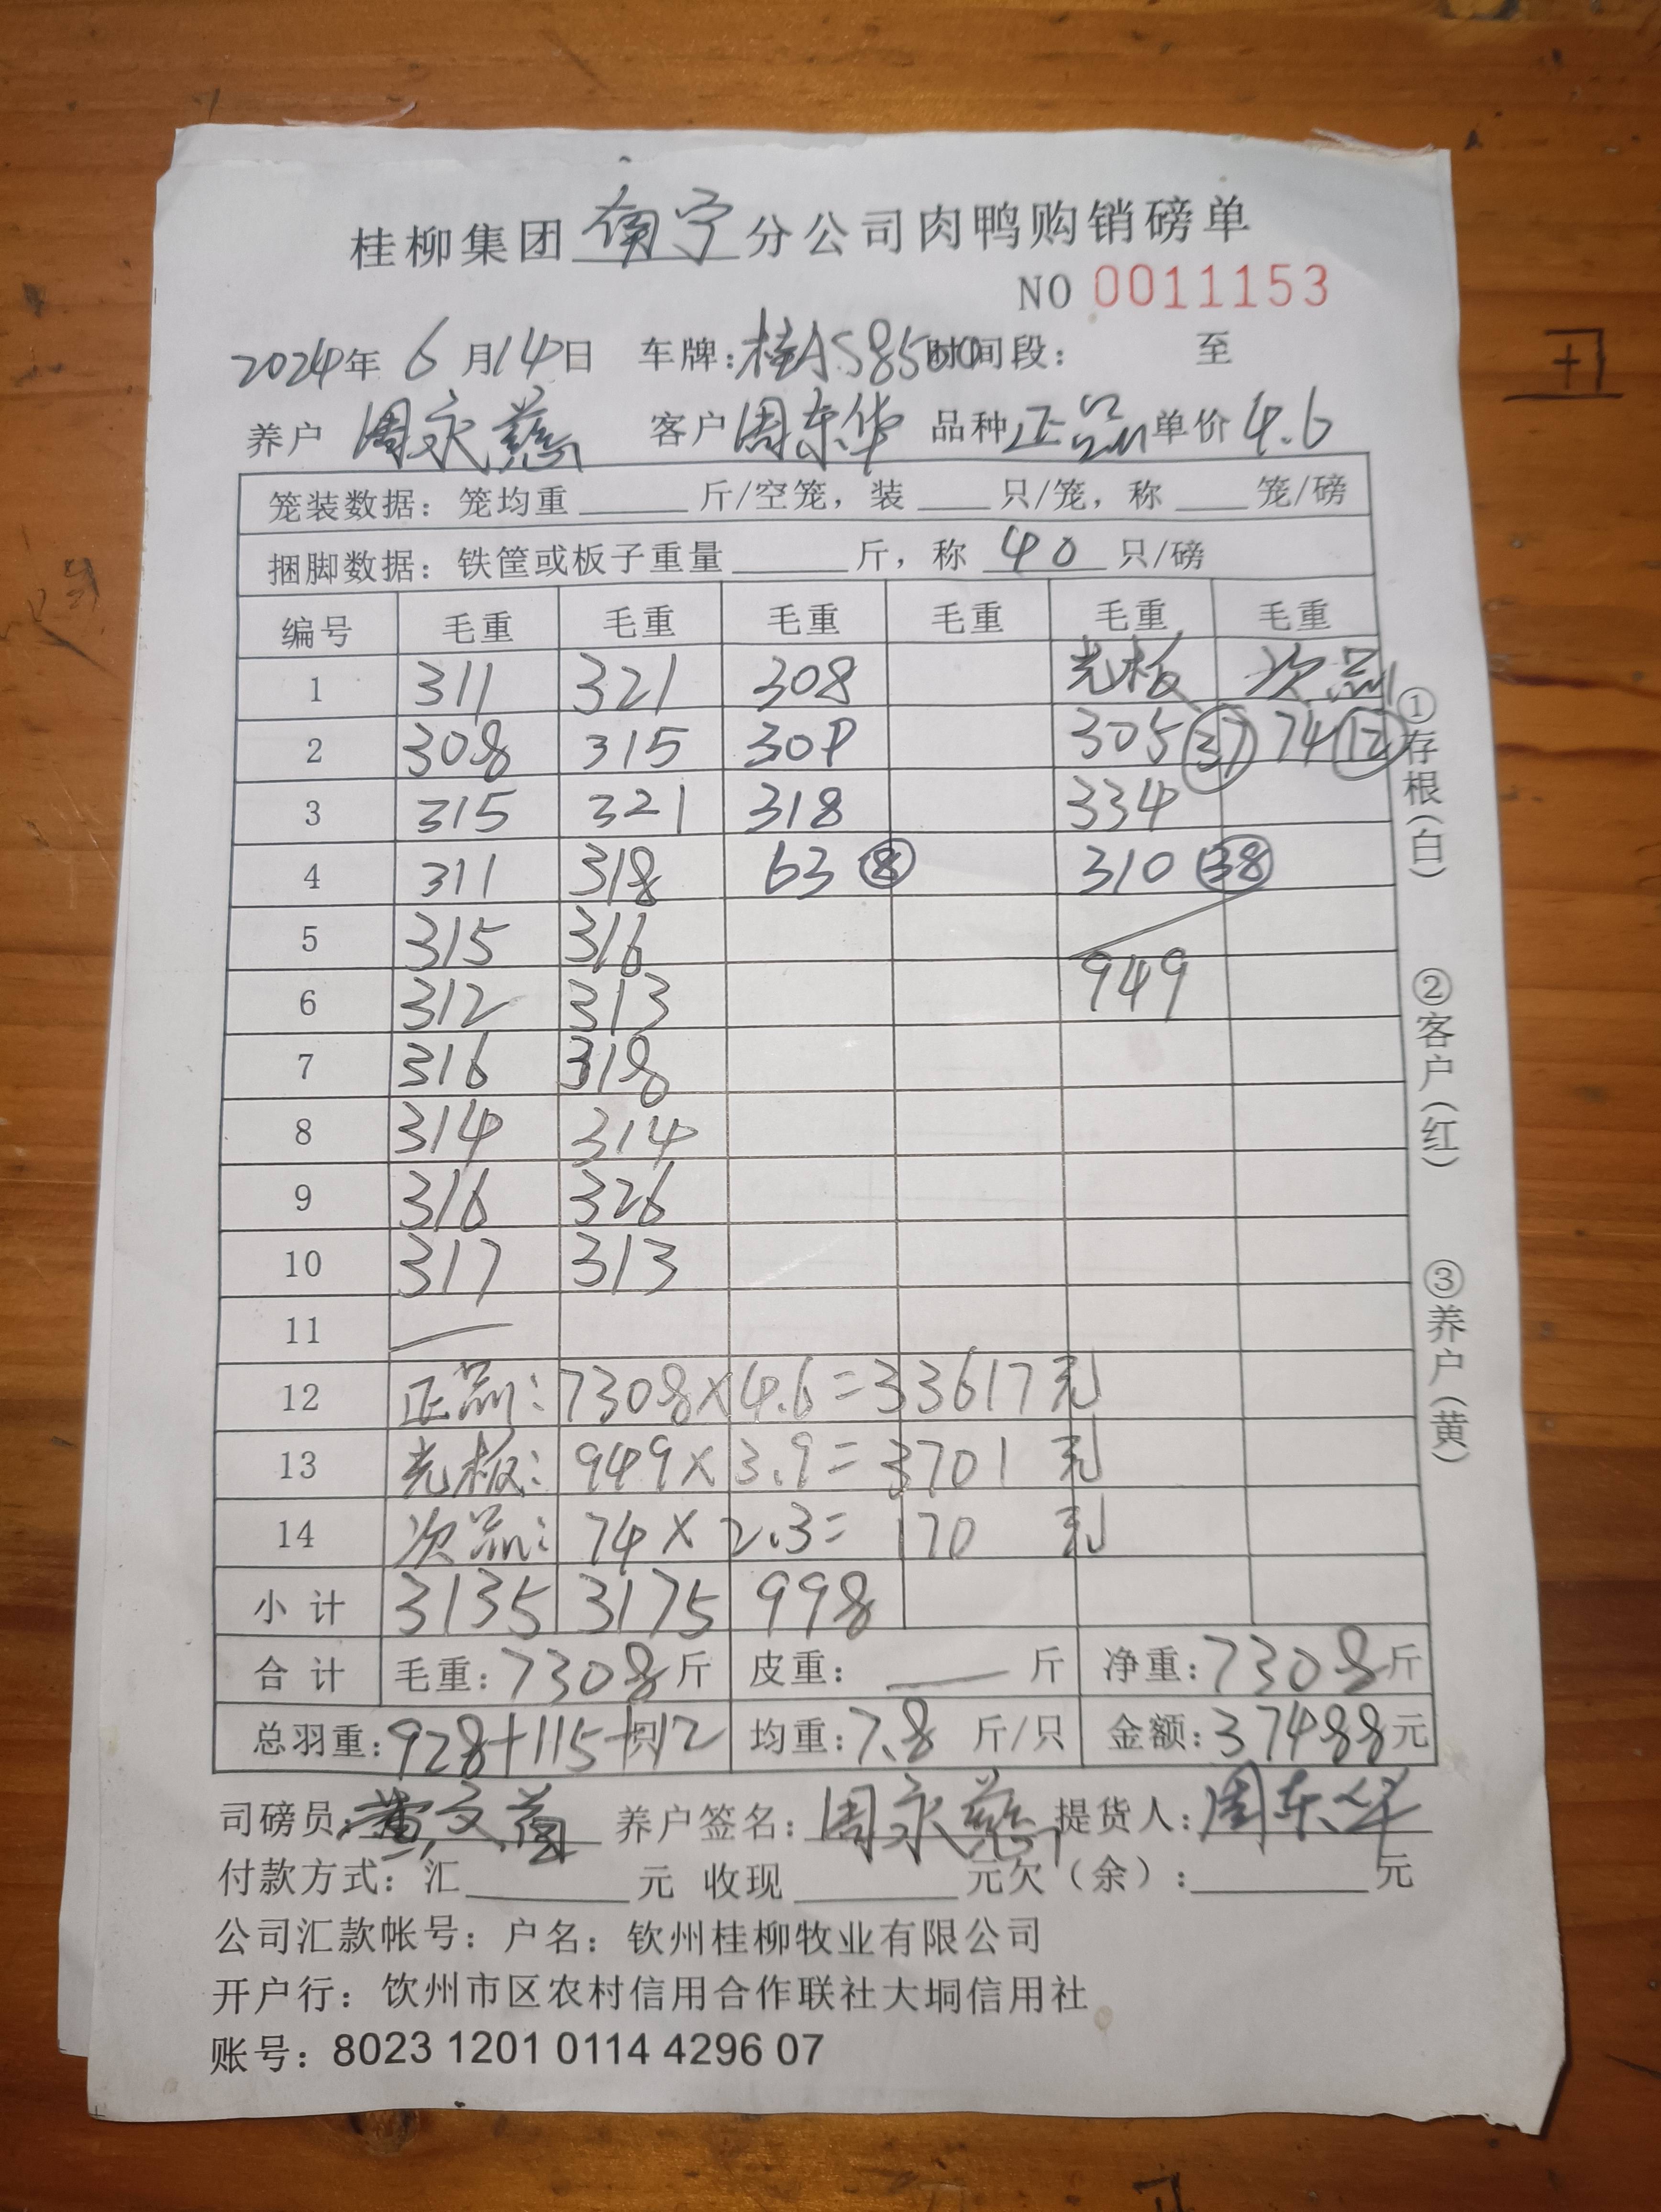 桂柳集团南宁分公司肉鸭购销磅单
NO 0011153
2024年 6月14日 车牌:桂AS8500时间段: 至
养户 周永慈 客户 周东华 品种 正品 单价 4.6
笼装数据: 笼均重______斤/空笼, 装____只/笼, 称____笼/磅
捆脚数据: 铁筐或板子重量______斤, 称 40 只/磅
编号 毛重 毛重 毛重 毛重 毛重 毛重
1 311 321 308 光板 次品
2 308 315 309 305 37 74 12
3 315 321 318 334
4 311 318 63 8 310 38
5 315 316
6 312 313 949
7 316 318
8 314 314
9 316 326
10 317 313
11 —
12 正品: 7308×4.6=33617元
13 光板: 949×3.9=3701元
14 次品: 74×2.3=170元
小计 3135 3175 998
合计 毛重:7308斤 皮重: — 斤 净重:7308斤
总羽重:928+115+12 只 均重:7.8 斤/只 金额:37488元
司磅员: 黄文 养户签名: 周永慈 提货人: 周东华
付款方式: 汇______元 收现______元欠(余):______元
公司汇款帐号: 户名: 钦州桂柳牧业有限公司
开户行: 钦州市区农村信用合作联社大垌信用社
账号: 8023 1201 0114 4296 07
①存根(白) ②客户(红) ③养户(黄)
丑